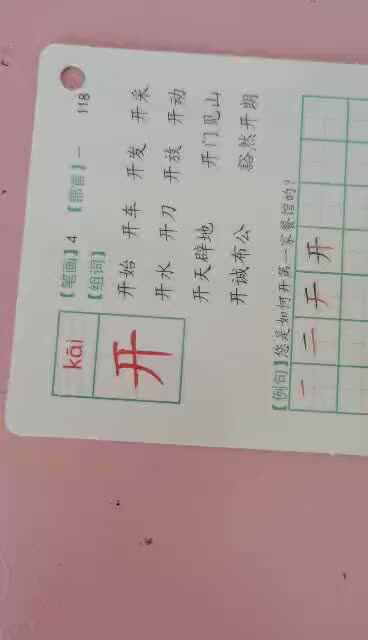 kāi
开
【笔画】4 【部首】一 118
【组词】
开始 开车 开发 开采
开水 开刀 开放 开动
开天辟地 开门见山
开诚布公 豁然开朗
【例句】您是如何开第一家餐馆的?
一 二 开 开